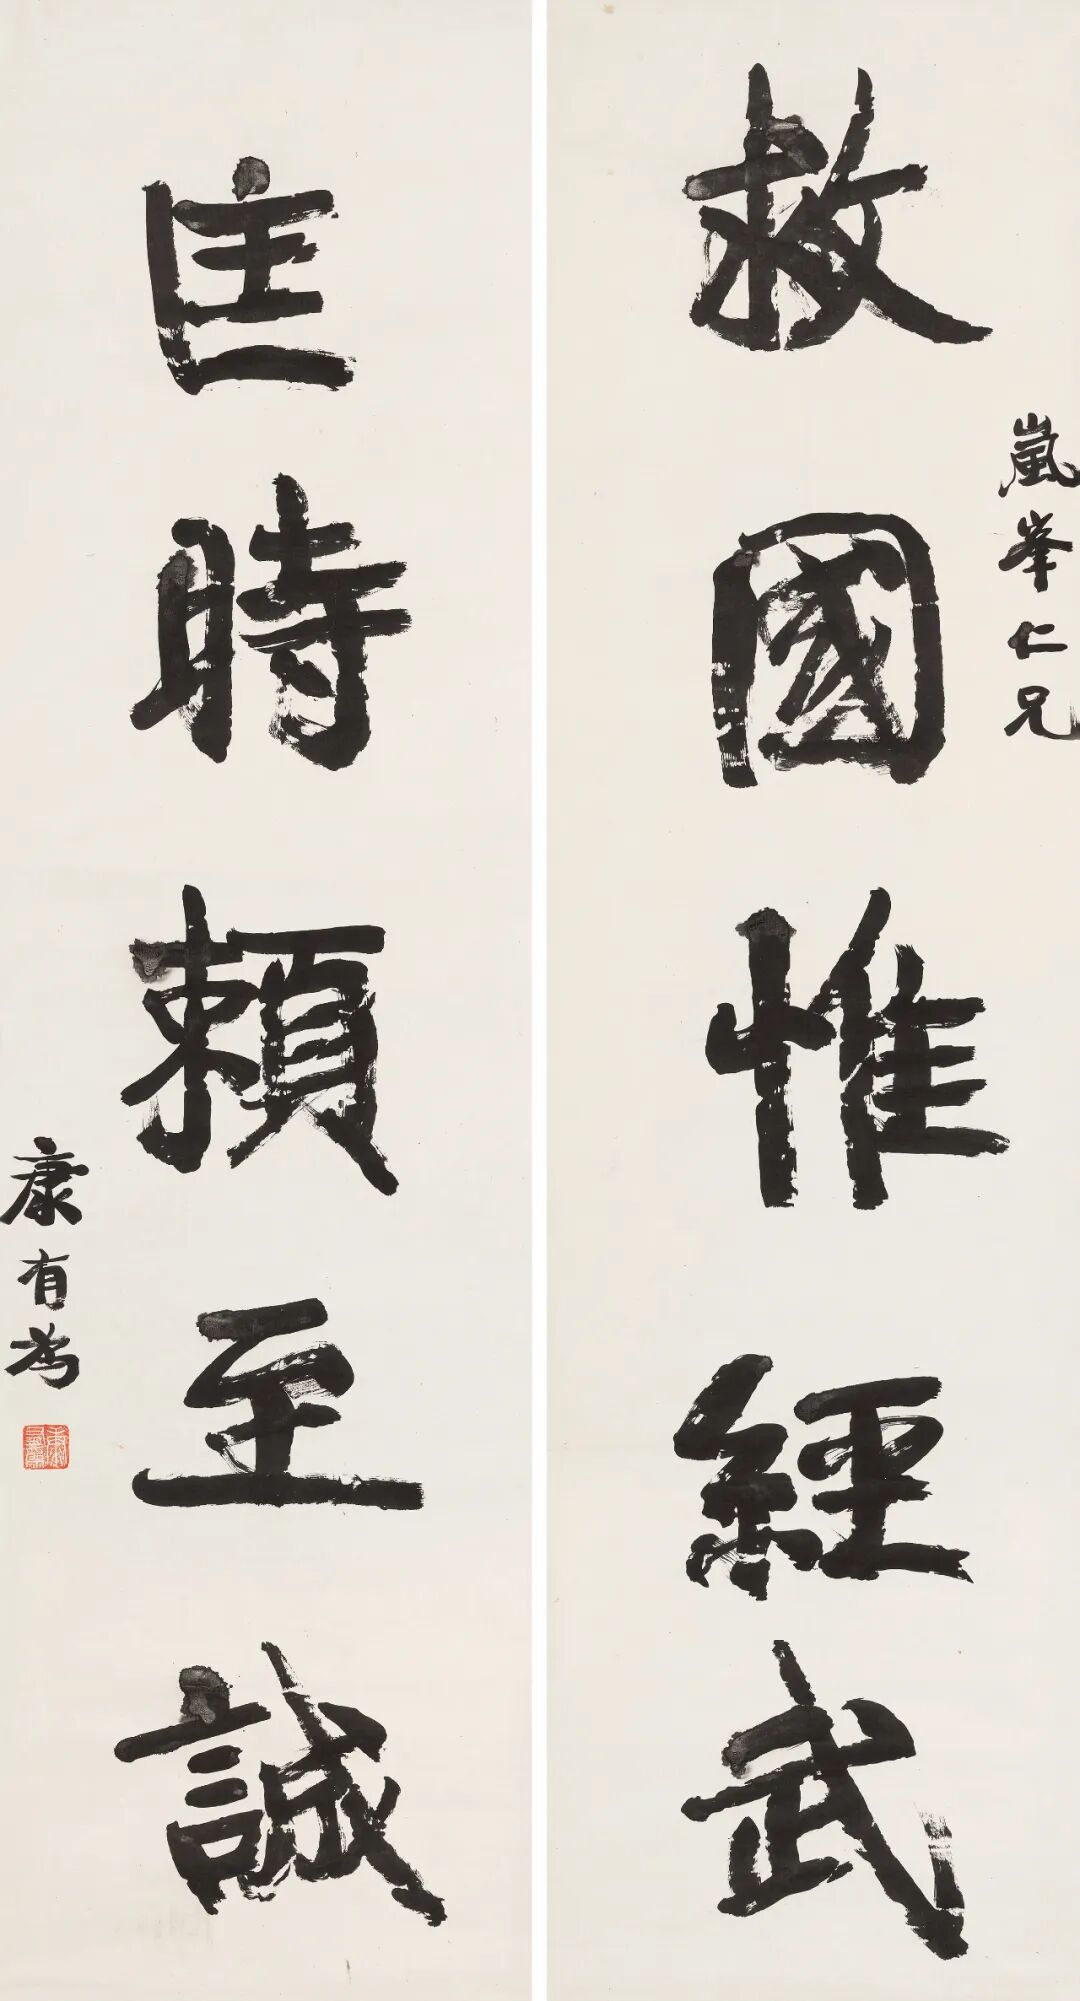 救國惟經武
嵐峯仁兄
匡時賴至誠
康有為